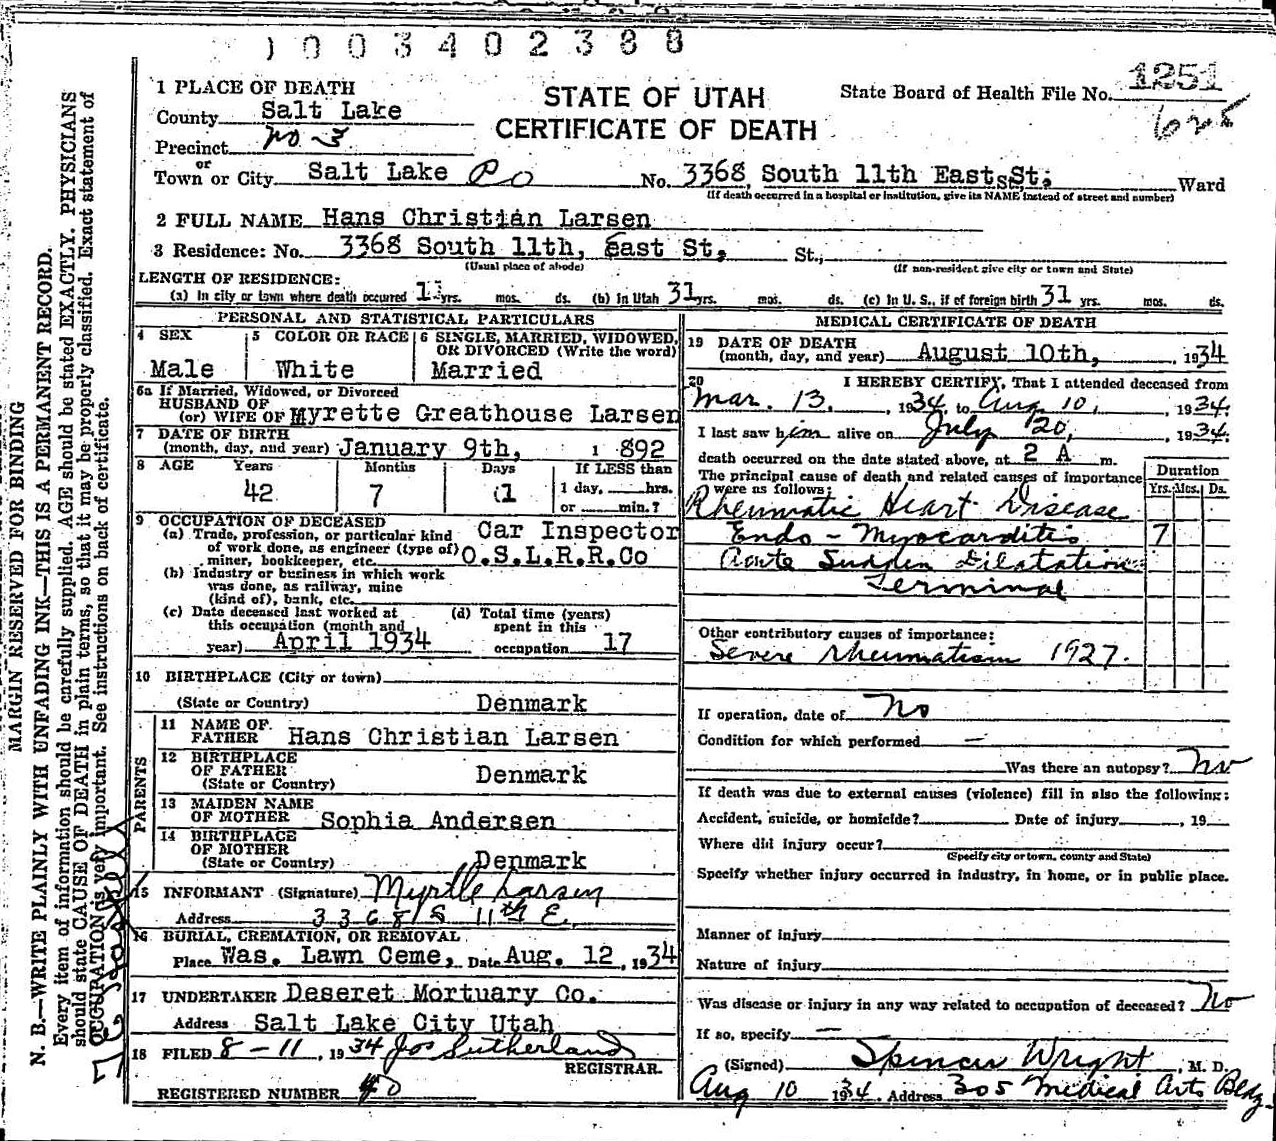 1003402388
1251
625
STATE OF UTAH
CERTIFICATE OF DEATH
State Board of Health File No.
1 PLACE OF DEATH
County Salt Lake
Precinct No 3
or
Town or City Salt Lake Co No. 3368 South 11th East St. St; Ward
(If death occurred in a hospital or institution, give its NAME instead of street and number)
2 FULL NAME Hans Christian Larsen
3 Residence: No. 3368 South 11th, East St, St.,
(Usual place of abode) (If non-resident give city or town and State)
LENGTH OF RESIDENCE:
(a) In city or town where death occurred 11 yrs. mos. ds. (b) In Utah 31 yrs. mos. ds. (c) In U. S., if of foreign birth 31 yrs. mos. ds.
PERSONAL AND STATISTICAL PARTICULARS
4 SEX
Male
5 COLOR OR RACE
White
6 SINGLE, MARRIED, WIDOWED,
OR DIVORCED (Write the word)
Married
6a If Married, Widowed, or Divorced
HUSBAND OF
(or) WIFE OF Myrette Greathouse Larsen
7 DATE OF BIRTH
(month, day, and year) January 9th, 1 892
8 AGE Years Months Days If LESS than
42 7 1 1 day, hrs.
or min.?
9 OCCUPATION OF DECEASED
(a) Trade, profession, or particular kind Car Inspector
of work done, as engineer (type of) O.S.L.R.R.Co
miner, bookkeeper, etc.
(b) Industry or business in which work
was done, as railway, mine
(kind of), bank, etc.
(c) Date deceased last worked at
this occupation (month and
year) April 1934
(d) Total time (years)
spent in this
occupation 17
10 BIRTHPLACE (City or town)
(State or Country) Denmark
PARENTS
11 NAME OF
FATHER Hans Christian Larsen
12 BIRTHPLACE
OF FATHER Denmark
(State or Country)
13 MAIDEN NAME
OF MOTHER Sophia Andersen
14 BIRTHPLACE
OF MOTHER
(State or Country) Denmark
15 INFORMANT (Signature) Myrtle Larsen
Address 3368 S 11th E.
16 BURIAL, CREMATION, OR REMOVAL
Place Was. Lawn Ceme, Date Aug. 12, 1934
17 UNDERTAKER Deseret Mortuary Co.
Address Salt Lake City Utah
18 FILED 8-11, 1934 Jos Sutherland
REGISTRAR.
REGISTERED NUMBER 40
MEDICAL CERTIFICATE OF DEATH
19 DATE OF DEATH
(month, day, and year) August 10th, 1934
20 I HEREBY CERTIFY, That I attended deceased from
Mar. 13, 1934, to Aug 10, 1934.
I last saw him alive on July 20, 1934.
death occurred on the date stated above, at 2 A m.
The principal cause of death and related causes of importance
were as follows:
Duration
Yrs. Mos. Ds.
Rheumatic Heart Disease
Endo - Myocarditis 7
Acute Sudden Dilatation
Terminal
Other contributory causes of importance:
Severe rheumatism 1927.
If operation, date of No
Condition for which performed —
Was there an autopsy? No
If death was due to external causes (violence) fill in also the following:
Accident, suicide, or homicide? Date of injury , 19
Where did injury occur?
(Specify city or town, county and State)
Specify whether injury occurred in industry, in home, or in public place.
Manner of injury
Nature of injury
Was disease or injury in any way related to occupation of deceased? No
If so, specify —
(Signed) Spencer Wright, M. D.
Aug 10 1934. Address 305 Medical Arts Bldg.
MARGIN RESERVED FOR BINDING
N. B.—WRITE PLAINLY WITH UNFADING INK—THIS IS A PERMANENT RECORD.
Every item of information should be carefully supplied. AGE should be stated EXACTLY. PHYSICIANS
should state CAUSE OF DEATH in plain terms, so that it may be properly classified. Exact statement of
OCCUPATION is very important. See instructions on back of certificate.